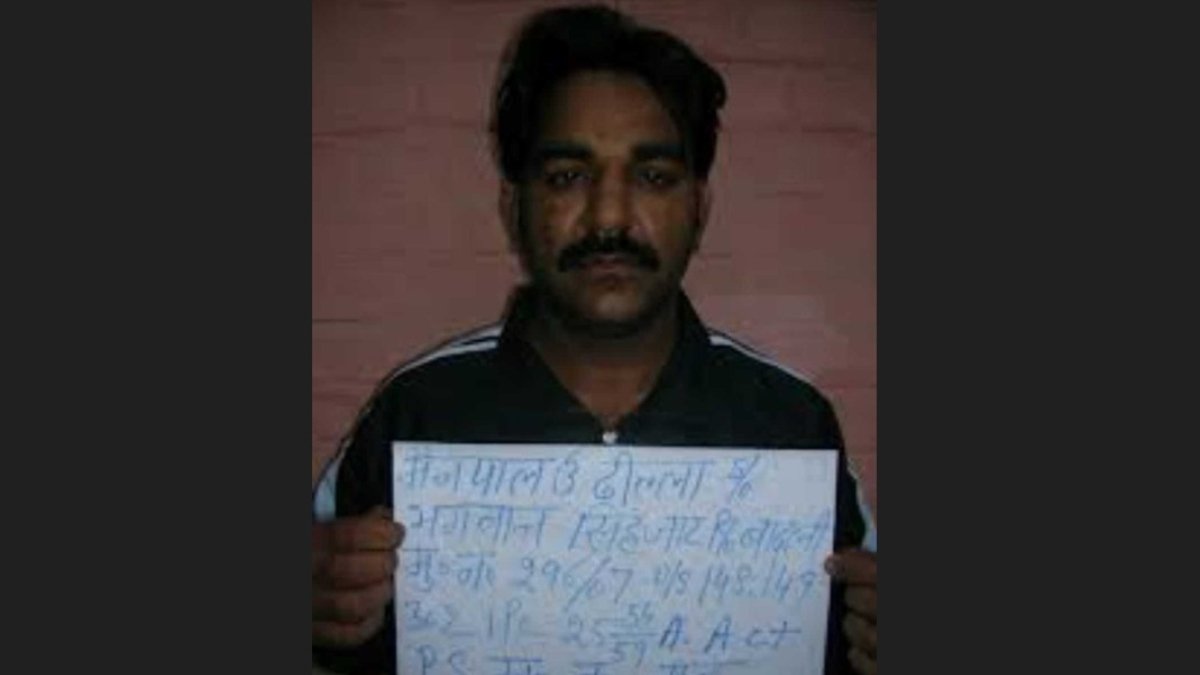 मैनपाल उ ढील्ला S/o
भगवान सिंह जाट R/o बादली
मु॰ न॰ 296/07 U/S 148.149
302 IPC 25 54 59 A. Act
P.S